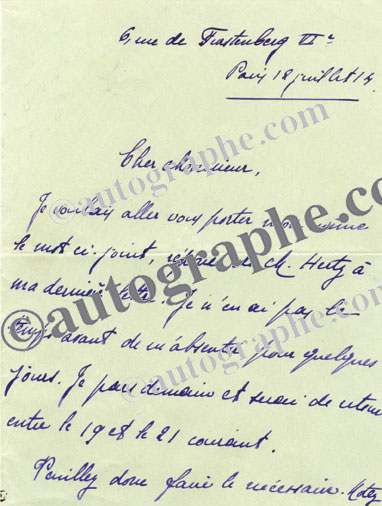 6, rue de Furstenberg VIe
Paris 18 juillet 14.
Cher Monsieur,
Je voulais aller vous porter moi-même
le mot ci-joint, réponse de M. Hertz à
ma dernière lettre. Je n'en ai pas le
temps avant de m'absenter pour quelques
jours. Je pars demain et serai de retour
entre le 19 et le 21 courant.
Veuillez donc faire le nécessaire. Notez
©autographe.com
©autographe.com
©autographe.com